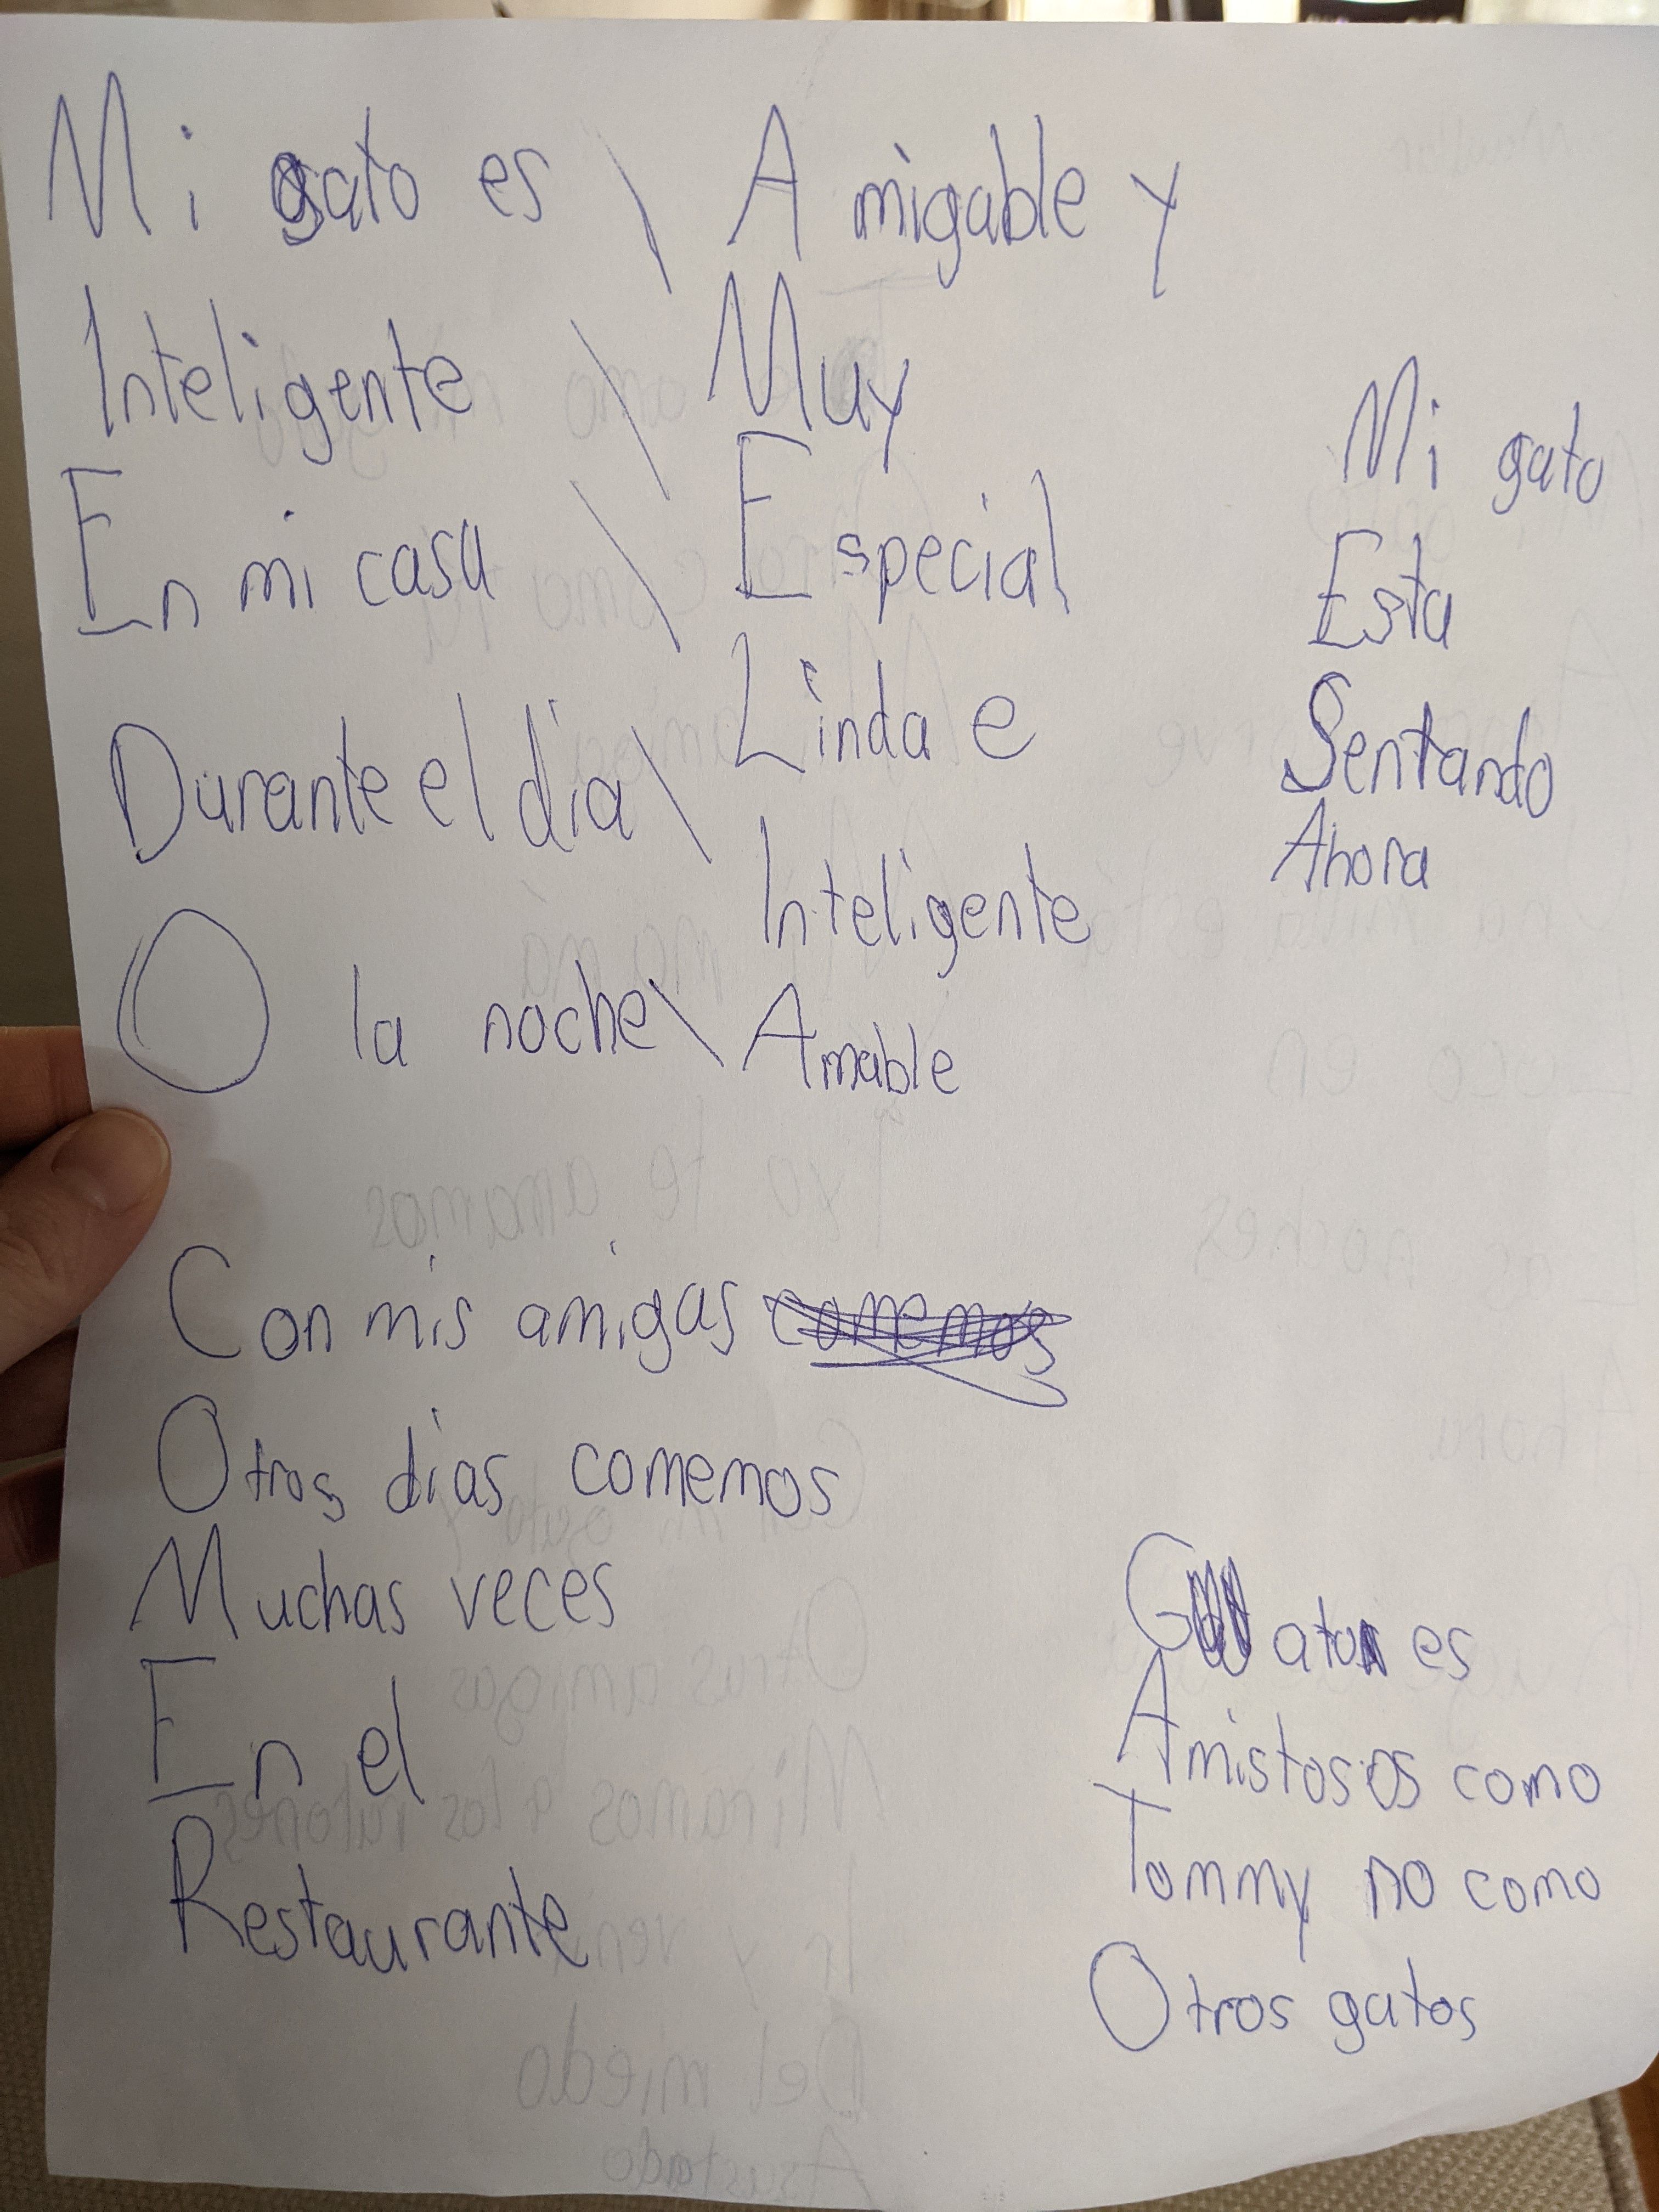 Mi gato es \
Inteligente \
En mi casa \
Durante el día \
O la noche \
Amigable y
Muy
Especial
Linda e
Inteligente
Amable
Mi gato
Esta
Sentando
Ahora
Con mis amigas
Otros días comemos
Muchas veces
En el
Restaurante
Gato es
Amistosos como
Tommy no como
Otros gatos